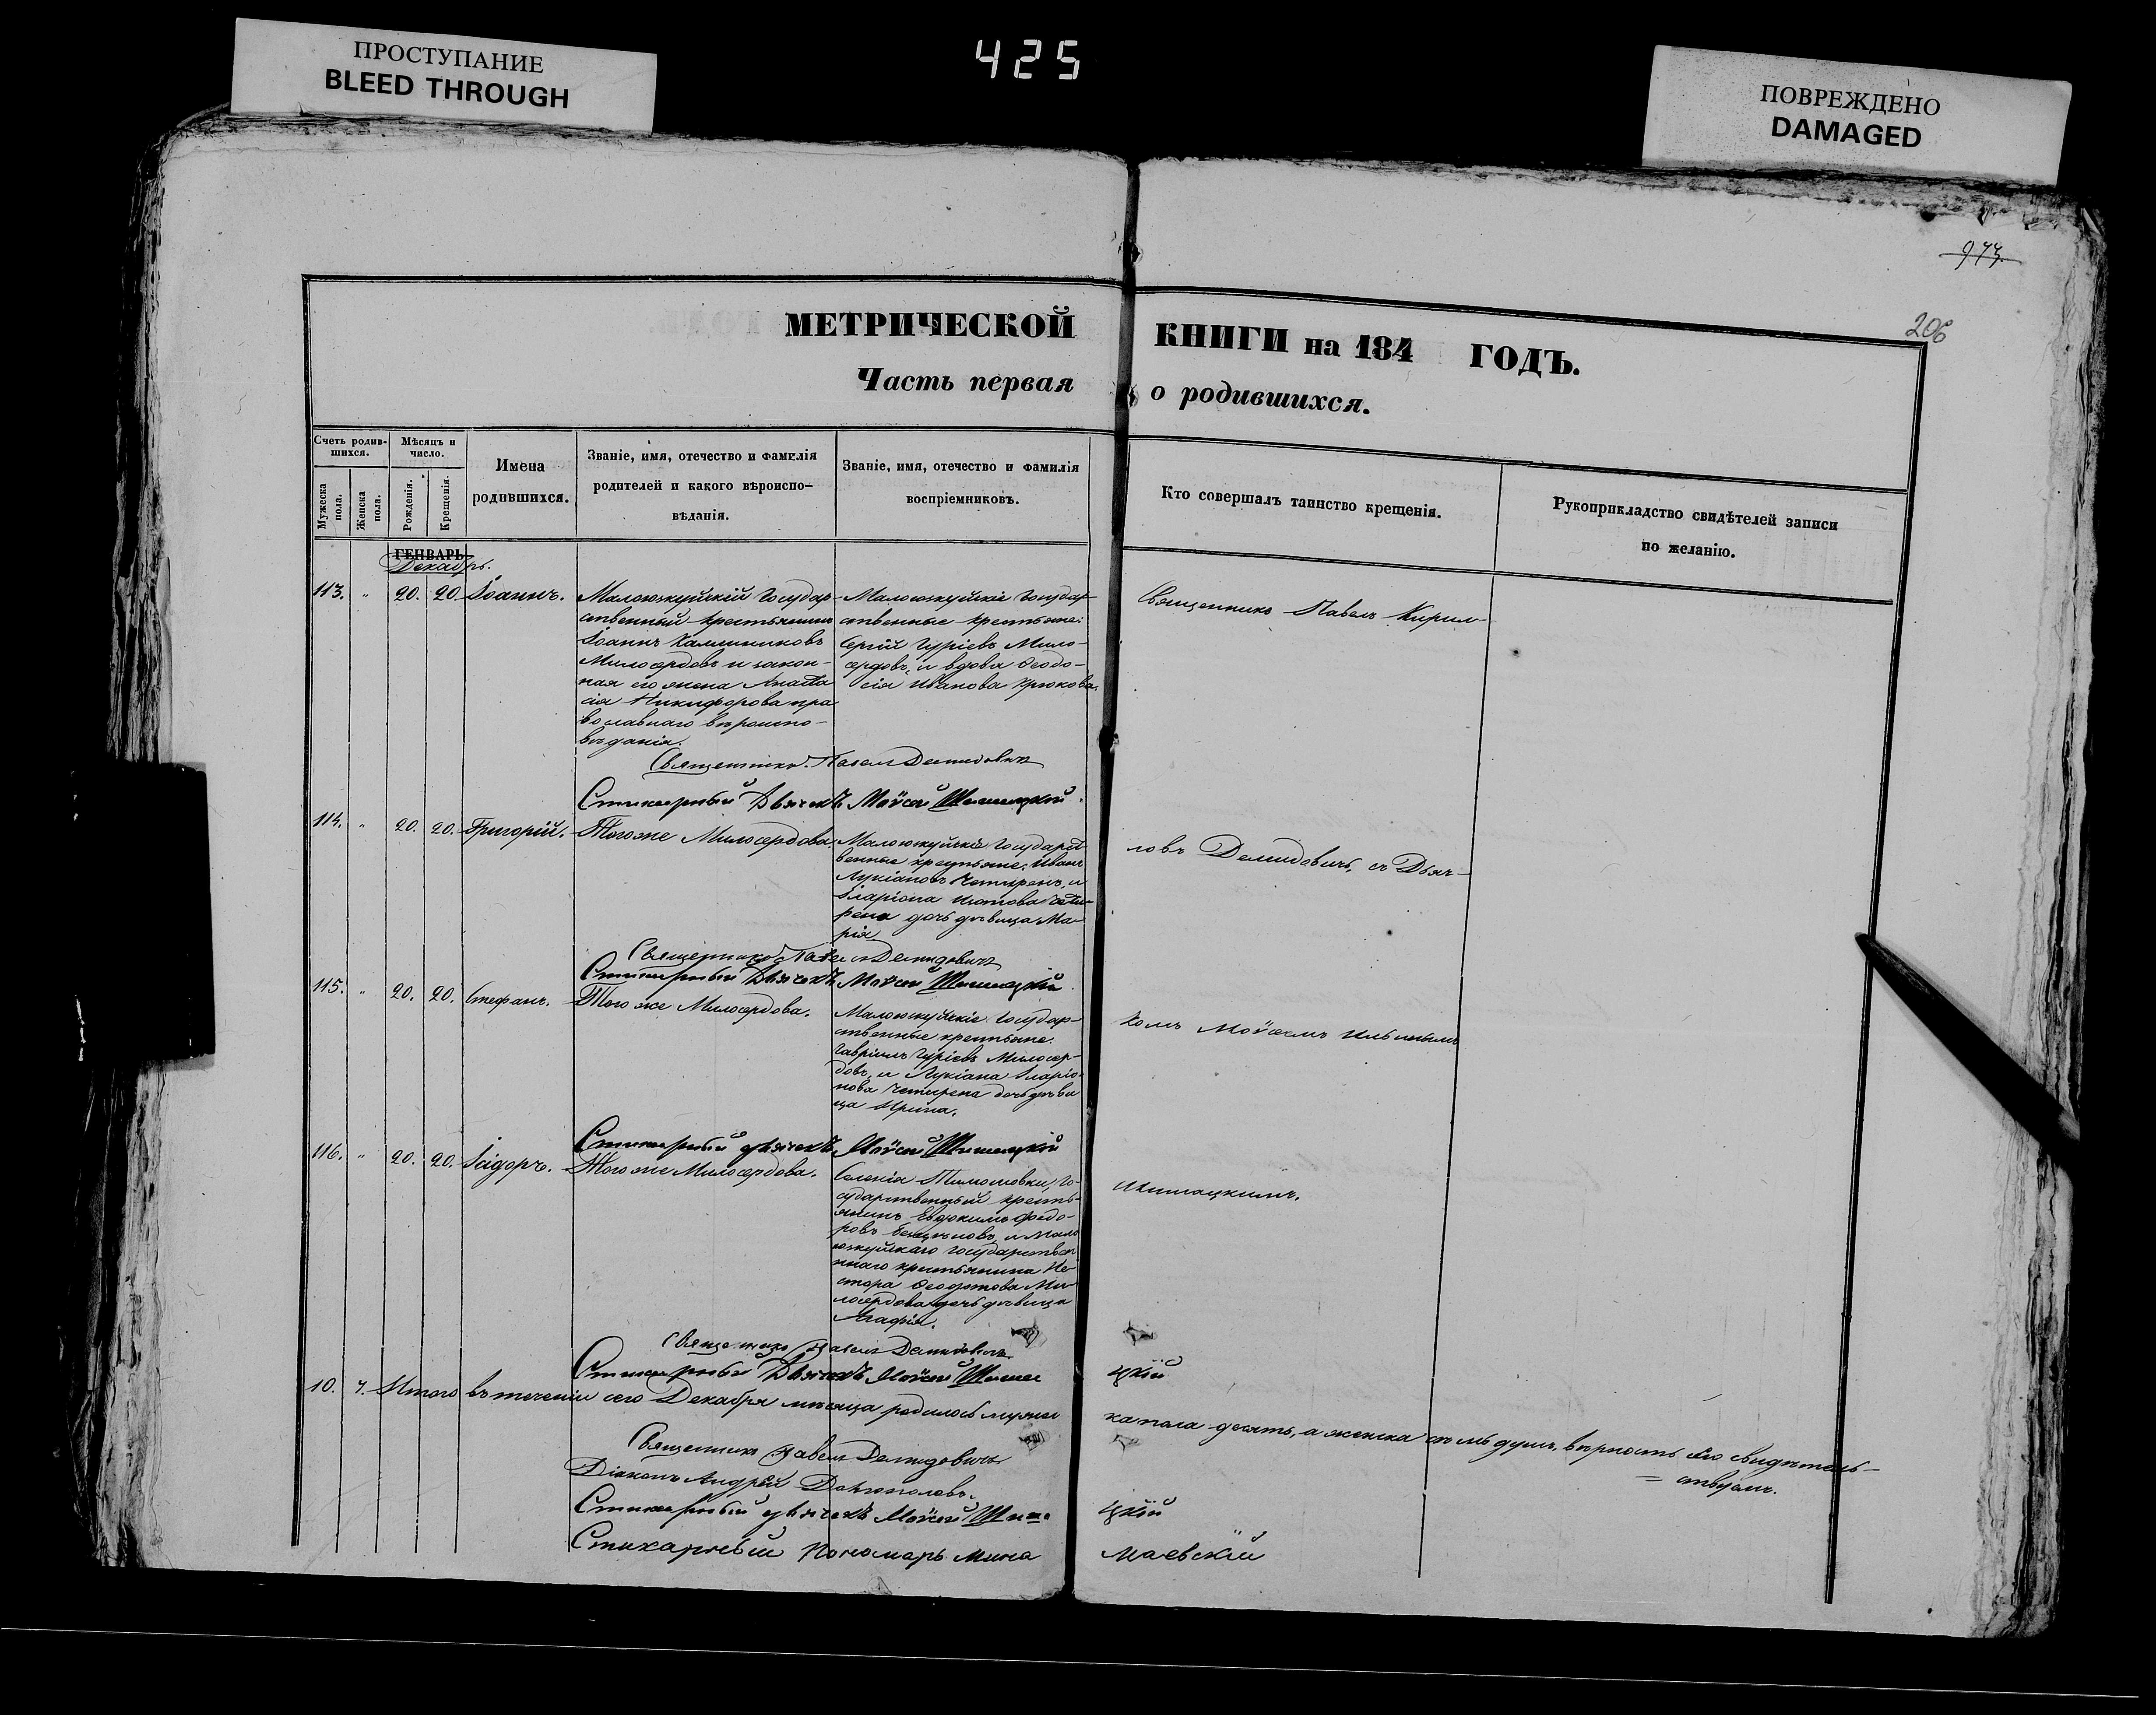 ПРОСТУПАНИЕ
BLEED THROUGH
425
ПОВРЕЖДЕНО
DAMAGED
206
МЕТРИЧЕСКОЙ КНИГИ на 184 ГОДЪ.
Часть первая о родившихся.
Счетъ родив-
шихся.
Мужеска
пола.
Женска
пола.
Мѣсяцъ и
число.
Рожденія.
Крещенія.
Имена
родившихся.
Званіе, имя, отечество и фамилія
родителей и какого вѣроиспо-
вѣданія.
Званіе, имя, отечество и фамилія
воспріемниковъ.
Кто совершалъ таинство крещенія.
Рукоприкладство свидѣтелей записи
по желанію.
ГЕНВАРЬ
Декабрь.
113. " 20. 20 Іоаннъ.
Малоюжуйскій Государ-
ственный крестьянинъ
Іоаннъ Каллиниковъ
Милосердовъ и закон-
ная его жена Анаста
сія Никифорова пра
вославнаго вѣроиспо-
вѣданія.
Малоюжуйскіе Государ-
ственные крестьяне:
Сергій Гуріевъ Мило-
сердовъ, и вдова Ѳеодо-
сія Иванова Крюкова.
Священникъ Павелъ Кирил-
Священникъ Павелъ Демидовичъ
Стихарный Дьячекъ Моѵсей
114. " 20. 20. Григорій.
Тогоже Милосердова.
Малоюжуйскіе Государст
венные крестьяне: Иванъ
Лукіановъ Чемиренъ, и
Иларіона Изотова Чеми-
рена дочь дѣвица Ма-
рія
ловъ Демидовичъ, съ Дьяч-
Священникъ Павелъ Демидовичъ
Стихарный Дьячекъ Моѵсей
115. " 20. 20. Стефанъ.
Того же Милосердова.
Малоюжуйскіе Государ-
ственные крестьяне.
Гавріилъ Гуріевъ Милосер-
довъ, и Лукіана Иларіо-
нова Чемирена дочь дѣви
ца Ирина.
комъ Моѵсеемъ
Стихарный дьячекъ Моѵсей
116. " 20. 20. Ісідоръ.
Того же Милосердова.
Селенія Тимошовки, Го-
сударственный кресть-
янинъ Евдокимъ Федо-
ровъ и Мало
южуйскаго Государствен
ннаго крестьянина Не-
стора Ѳеодотова Ми-
лосердова дочь дѣвица
Агафія.
Священникъ Павелъ Демидовичъ
Стихарный Дьячекъ Моѵсей
цкій
10. 7. Итого въ теченіи сего Декабря мѣсяца родилось мужес
ка пола десять, а женска семь душъ, вѣрность сего свидѣтель-
= ствуемъ.
Священникъ Павелъ Демидовичъ
Діаконъ Андрей
Стихарный дьячекъ Моѵсей
цкій
Стихарный Пономарь Мина
маевскій